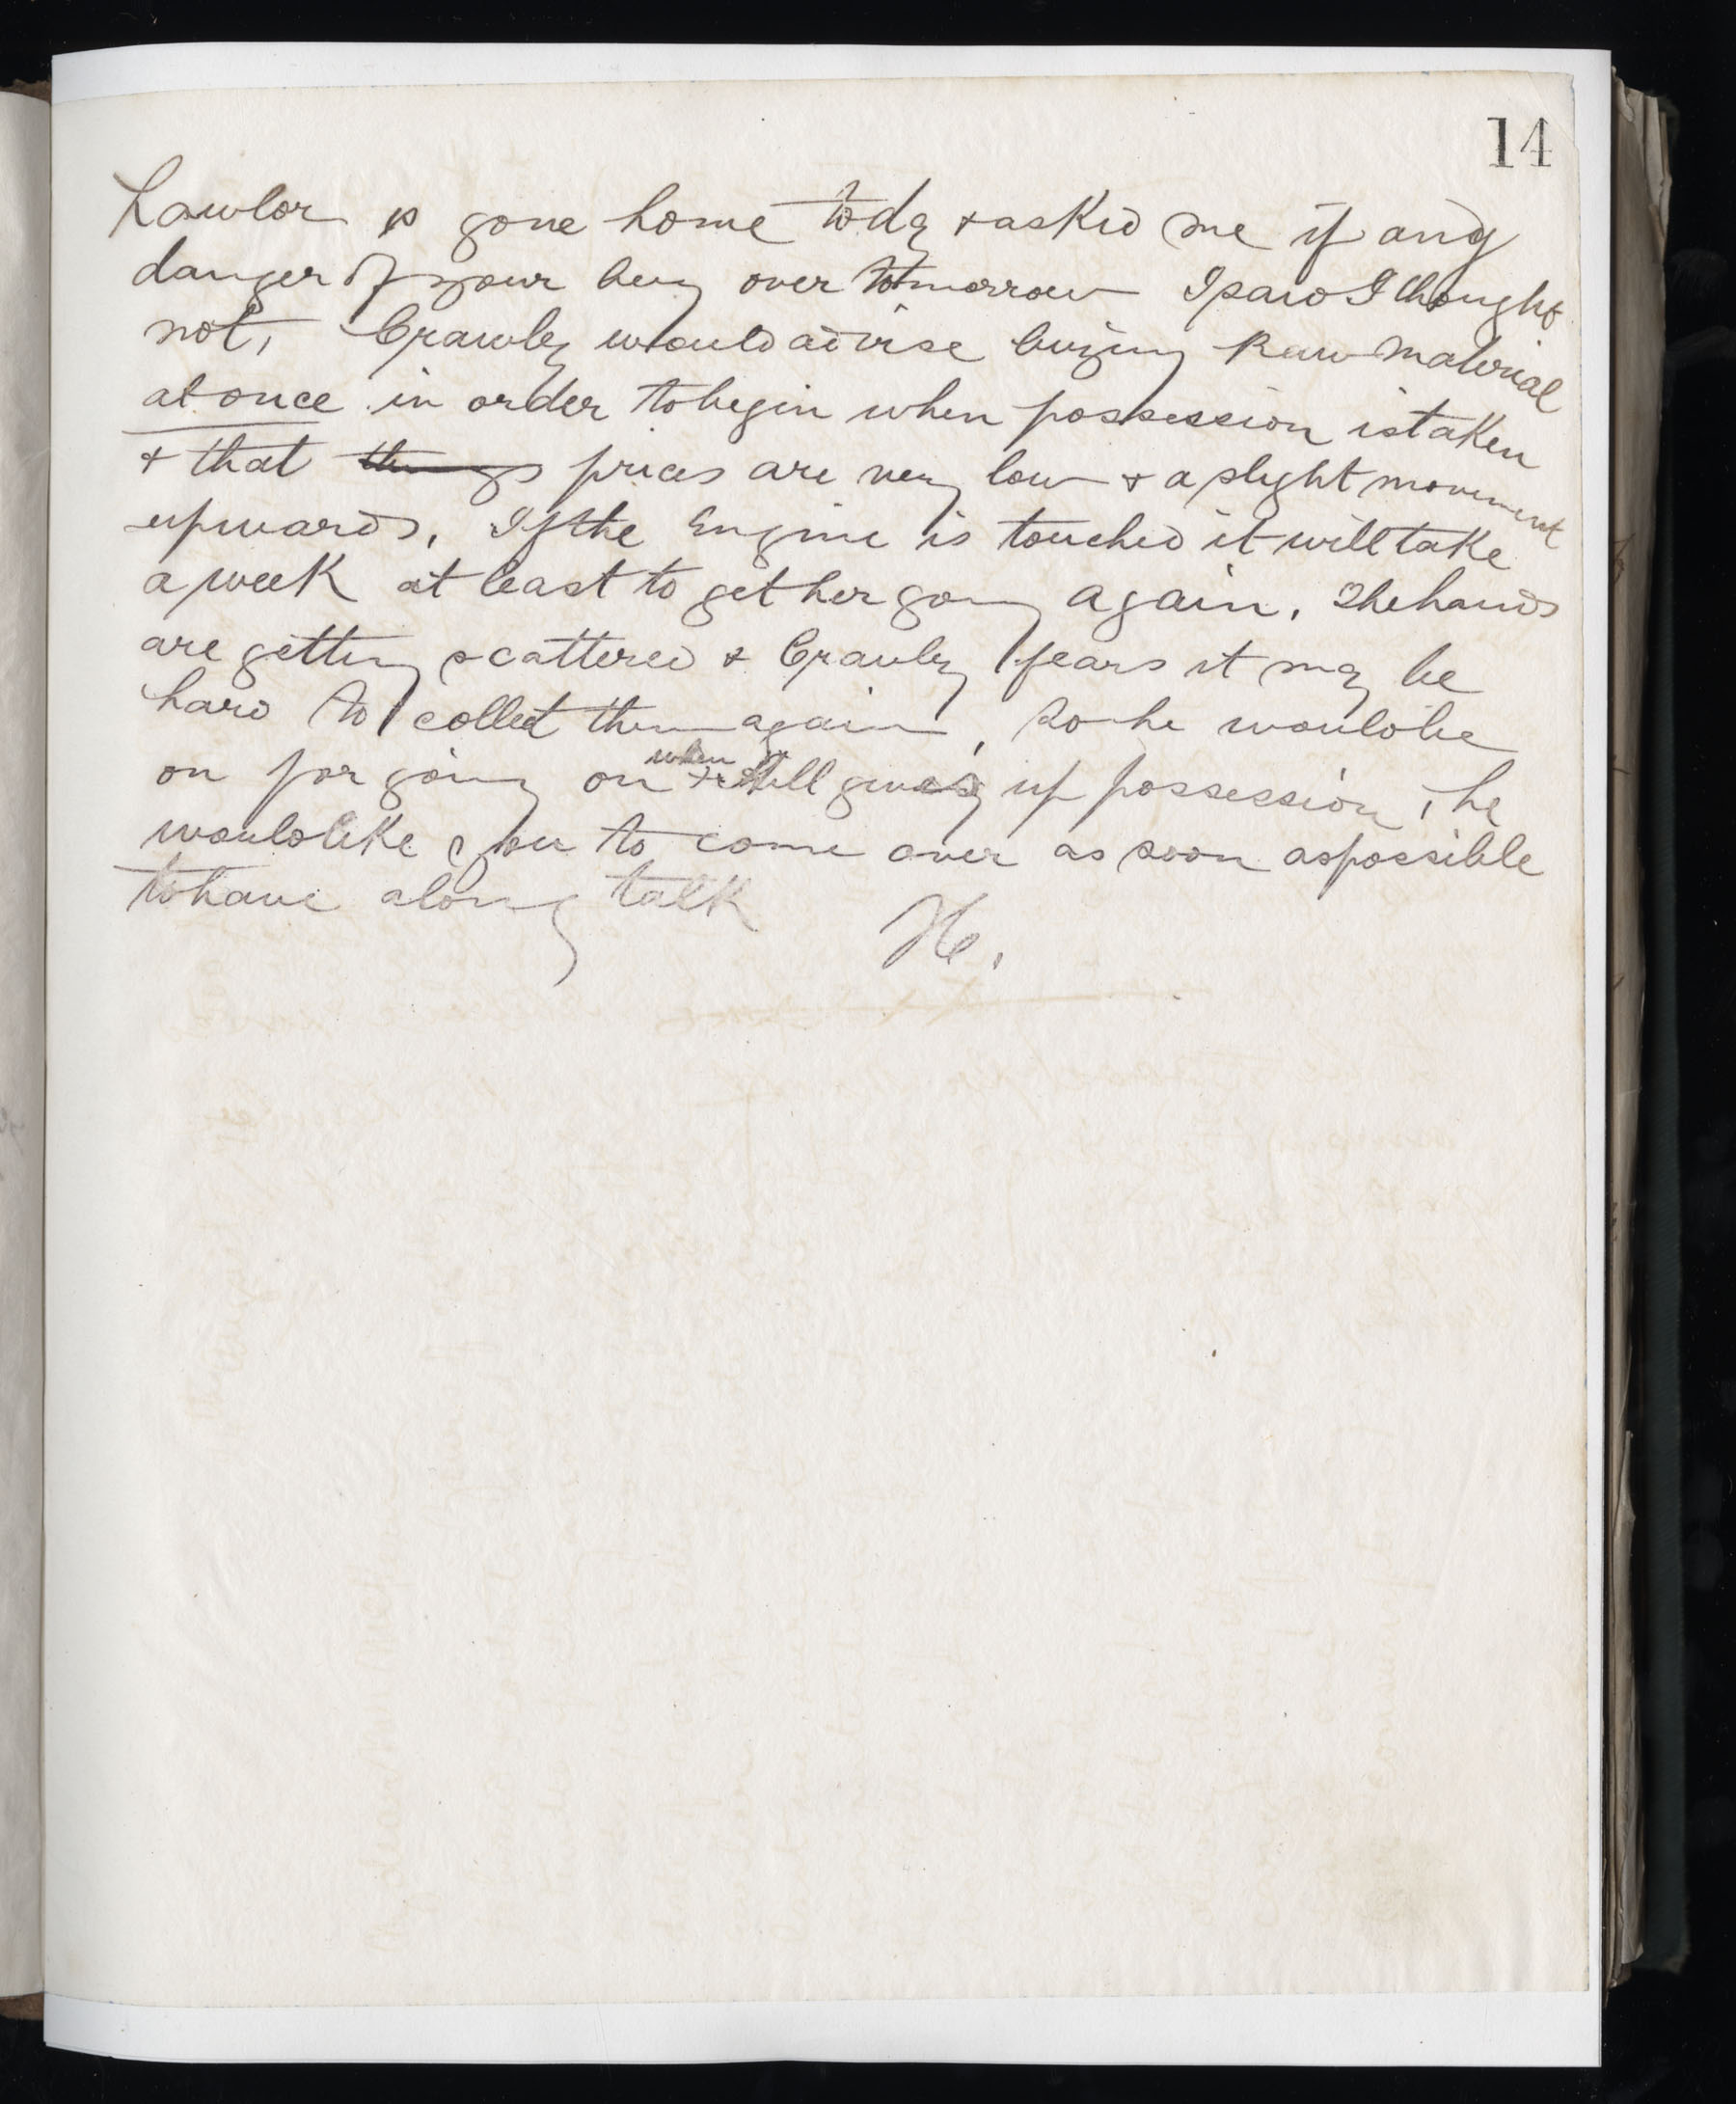 14
Lawlor is gone home today + asked me if any
danger of your being over tomorrow I said I thought
not, Crawley would advise buying Raw Material
at once in order to begin when possession is taken
+ that things prices are very low + a slight movement
upwards. If the Engine is touched it will take
a week at least to get her going again. The hands
are getting scattered + Crawley fears it may be
hard to collect them again, so he would be
on for going on when still gives up possession, he
would like you to come over as soon as possible
to have a long talk